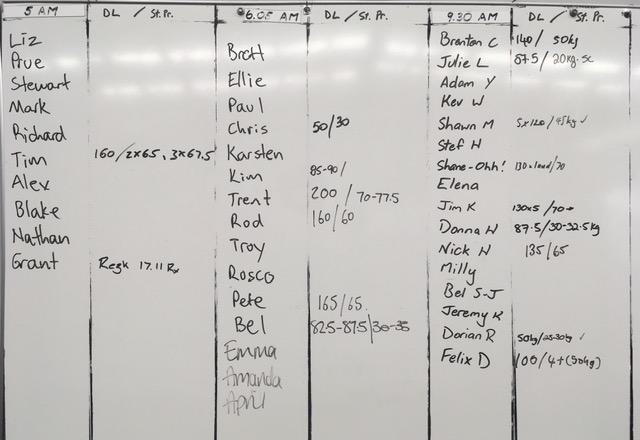 5 AM DL / St. Pr. 6.05 AM DL / St. Pr. 9.30 AM DL / St. Pr.
Liz
Prue
Stewart
Mark
Richard
Tim 160/2x65, 3x67.5
Alex
Blake
Nathan
Grant Regk 17.11 Rx
Brett
Ellie
Paul
Chris 50/30
Karsten
Kim 85-90/
Trent 200 / 70-77.5
Rod 160/60
Troy
Rosco
Pete 165/65.
Bel 82.5-87.5/30-35
Emma
Amanda
April
Brenton C 140/ 50kg
Julie L 87.5/20kg.sc
Adam Y
Kev W
Shawn M 5x120/45kg ✓
Stef H
Shane-Ohh! /70
Elena
Jim K 130x5 /70+
Donna H 87.5/30-32.5kg
Nick H 135/65
Milly
Bel S-J
Jeremy K
Dorian R 50kg/25-30kg ✓
Felix D 100/4+(50kg)